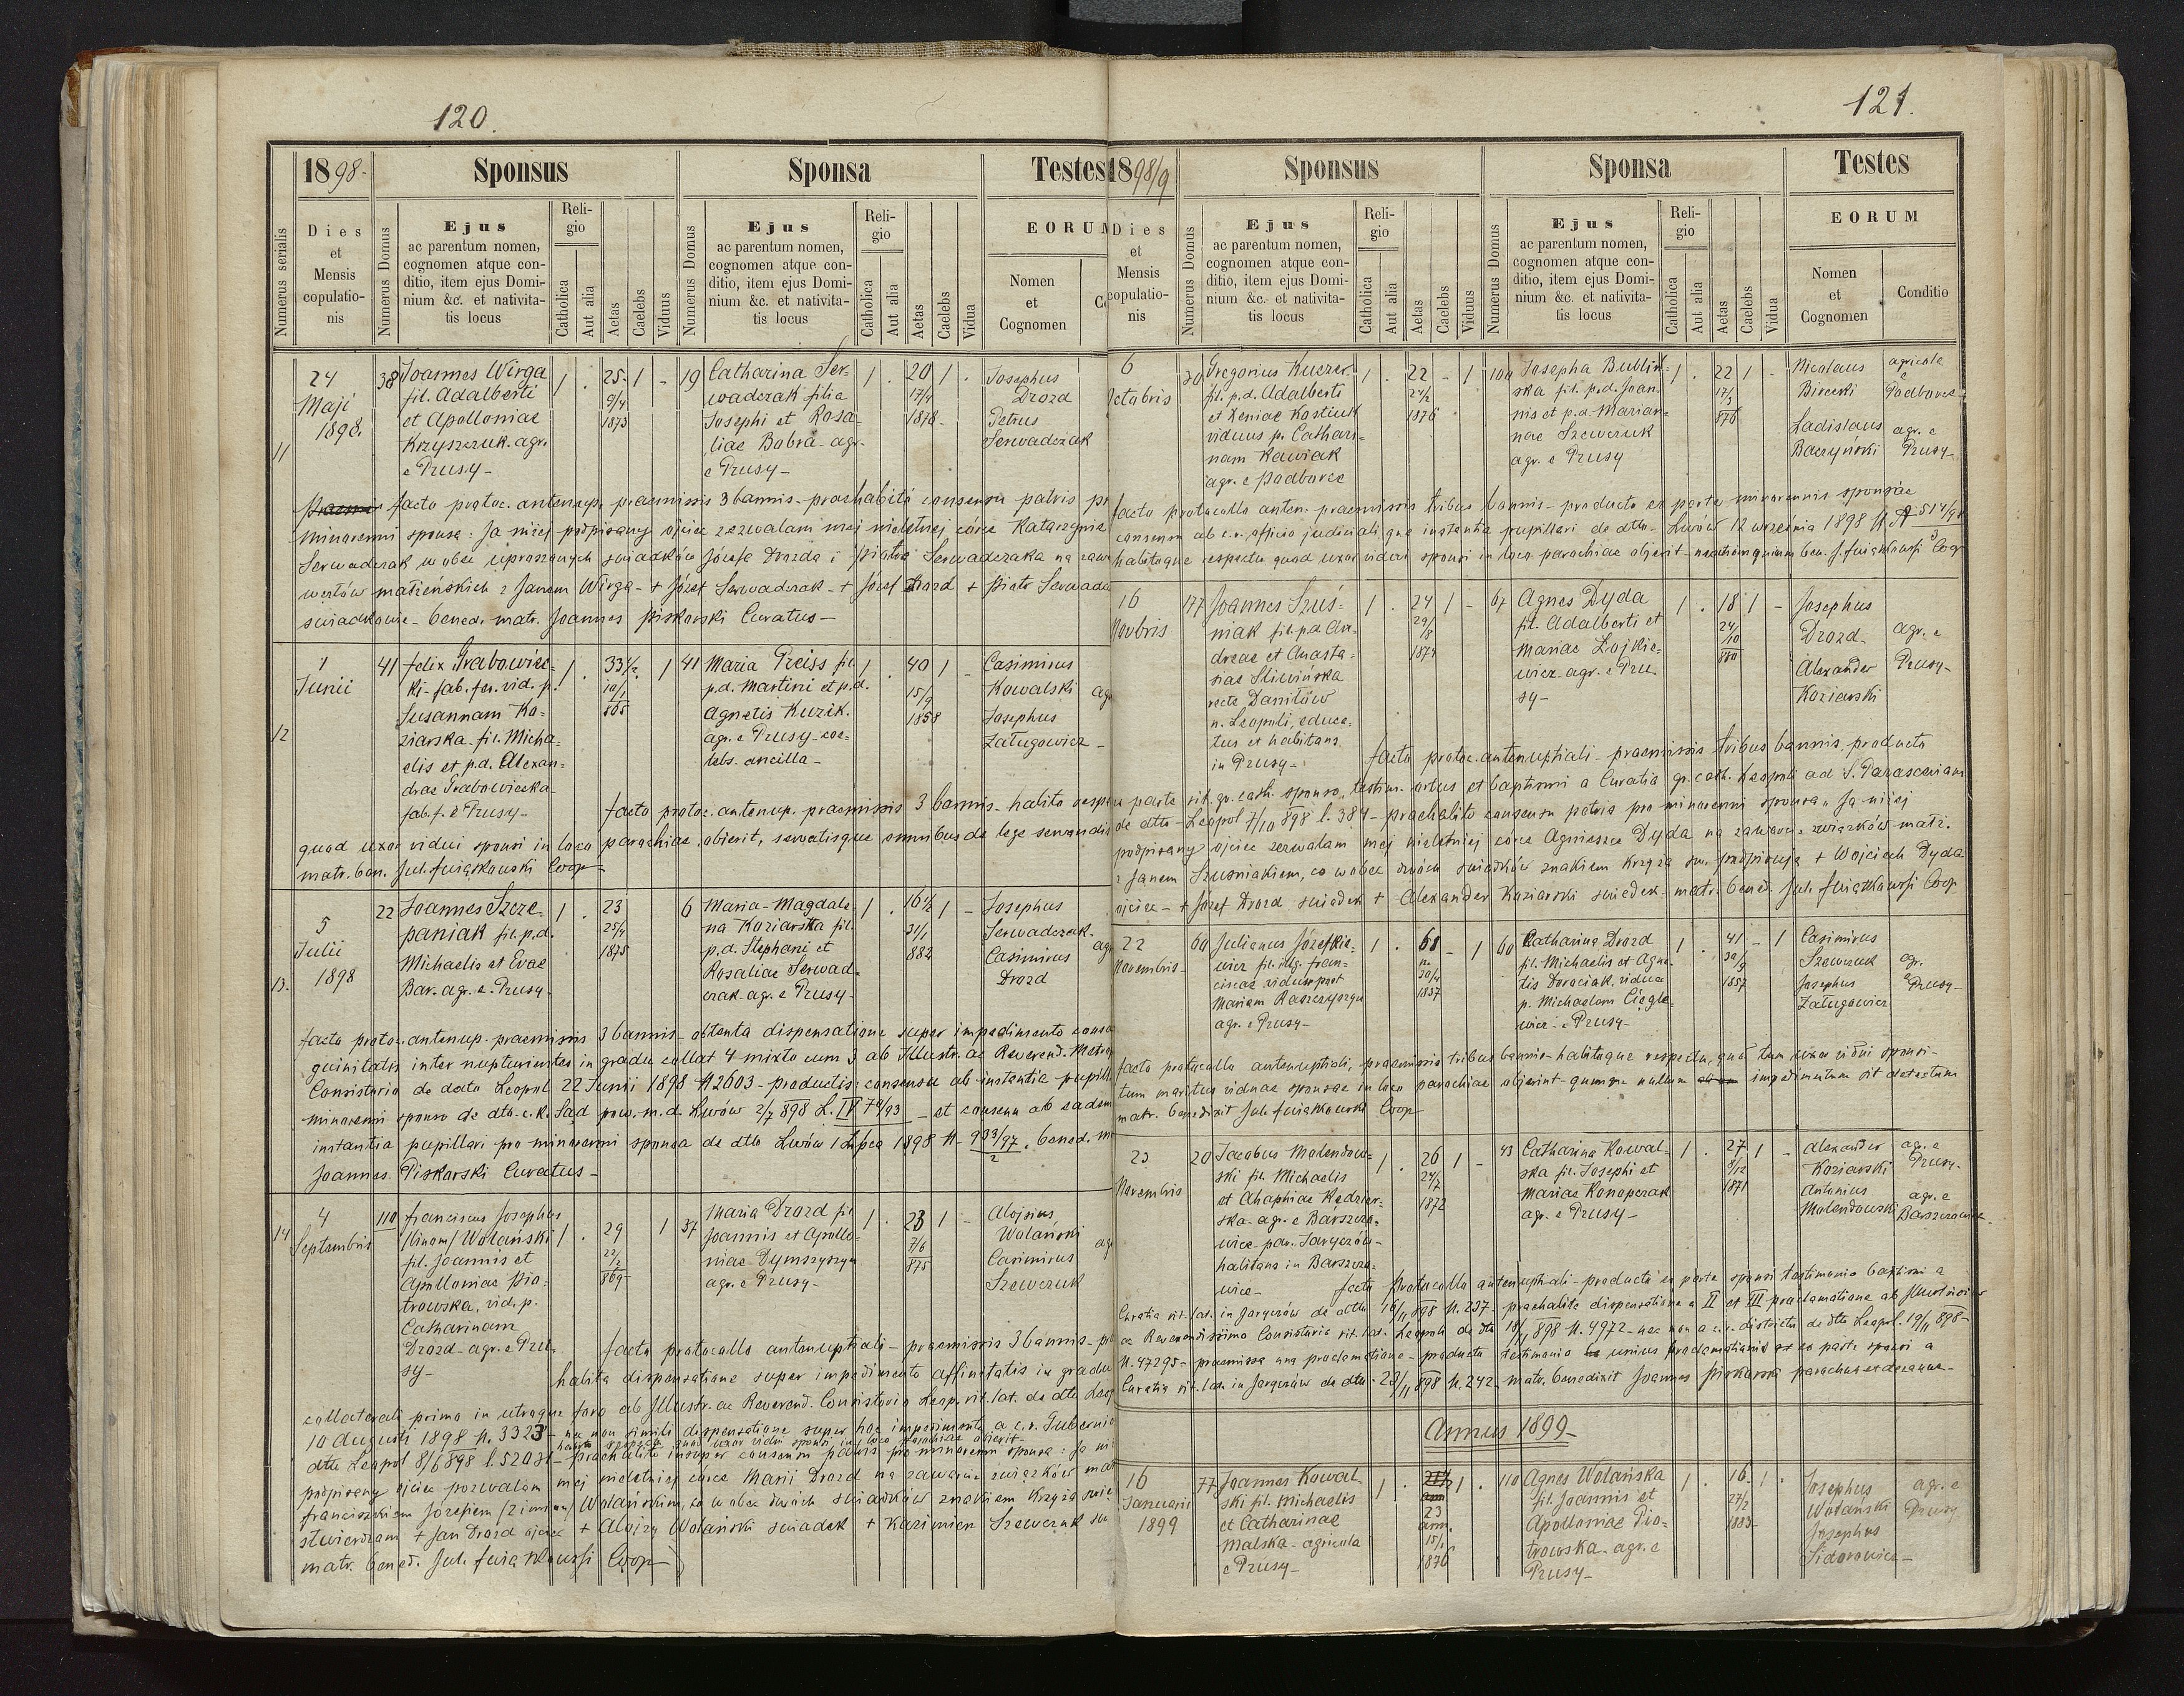 120.
1898.
Sponsus
Sponsa
Testes
Numerus serialis
Dies
et
Mensis
copulatio-
nis
Numerus Domus
Ejus
ac parentum nomen,
cognomen atque con-
ditio, item ejus Domi-
nium &c. et nativita-
tis locus
Reli-
gio
Catholica
Aut alia
Aetas
Caelebs
Viduus
Numerus Domus
Ejus
ac parentum nomen,
cognomen atque con-
ditio, item ejus Domi-
nium &c. et nativita-
tis locus
Reli-
gio
Catholica
Aut alia
Aetas
Caelebs
Vidua
EORUM
Nomen
et
Cognomen
11
24
Maji
1898.
38
Joannes Wirga
fil. Adalberti
et Apolloniae
Krzyszczuk. agr.
e Prusy-
1 . 25. 1 -
9/4
1873
19
Catharina Ser-
wadczak filia
Josephi et Rosa-
liae Bobra. agr.
e Prusy-
1 . 20 1 .
17/4
1878.
Josephus
Drozd
Petrus
Serwadczak
facto protoc. antenup. praemissis 3 bannis- praehabito consensu patris
minorenni sponsa: Ja niżej podpisany ojciec zezwalam mej nieletniej córce Katarzynie
Serwadczak w obec uproszonych świadków Józefa Drozda i Piotra Serwadczaka na
małżeńskich z Janem Wirga - + Józef Serwadczak - + Józef Drozd + Piotr
świadkowie - bened. matr. Joannes Piskorski Curatus-
12
1
Junii
41
Felix Grabowiec-
ki- fab. fer. vid. p.
Susannam Ko-
ziarska. fil. Micha-
elis et p.d. Alexan-
drae Grabowiecka
fab. f. e Prusy-
1 . 33 1/2 . 1
10/1
865
41
Maria Preiss fil.
p.d. Martini et p.d.
Agnetis Kuzik.
agr. e Prusy- coe-
lebs. ancilla-
1 . 40 1 -
15/9
1858
Casimirus
Kowalski
Josephus
Załugowicz-
facto protoc. antenup. praemissis 3 bannis- habito
quod uxor vidui sponsi in loco parochiae obierit, servatisque omnibus de lege servandis
matr. ben. Jul. Kwiatkowski Coop-
13.
5
Julii
1898
22
Joannes Szcze-
paniak fil. p.d.
Michaelis et Evae
Bar. agr. e Prusy-
1 . 23
25/4
1875
6
Maria- Magdale-
na Koziarska fil.
p.d. Stephani et
Rosaliae Serwad-
czak. agr. e Prusy-
1 . 16 1/2 1 -
31/1
882
Josephus
Serwadczak.
Casimirus
Drozd
facto protoc. antenup. praemissis 3 bannis- obtenta dispensatione super impedimento
inter nupturientes in gradu collat 4 mixto cum 3 ab Illustr. ac Reverend.
Consistorio de dato Leopol 22 Junii 1898 N 2603- productis consensu ab instantia
minorenni sponso de dto c.k. Sąd pow. m. d. Lwów 2/7 898 L. IV 74/93 - et consensu ab eadem
instantia pupillari pro minorenni sponsa de dto Lwów 1 Lipca 1898 N- 933/97 . bened.
2
Joannes Piskorski Curatus-
14
4
Septembris
110
Franciscus Josephus
/binom/ Wolański
fil. Joannis et
Apolloniae Pio-
trowska, vid. p.
Catharinam
Drozd- agr. e Pru-
sy-
1 . 29 1
22/2
869-
37
Maria Drozd fil.
Joannis et Apollo-
niae Dymszyszyn
agr. e Prusy-
1 . 23 1 -
7/6
875
Alojsius
Wolański
Casimirus
Szewczuk
facto protocollo antenuptiali- praemissis 3 bannis-
habita dispensatione super impedimento affinitatis in gradu
collaterali primo in utroque foro ab Illustr. ac Reverend. Consistorio Leop. rit. lat. de dto
10 Augusti 1898 N. 3323- nec non simili dispensatione super hoc impedimento a c.r.
dto Leopol 8/6 898 l. - praehabito insuper consensu patris pro minorenni sponsa: Ja
podpisany ojciec pozwalam mej nieletniej córce Marii Drozd na zawarcie związków
Franciszkiem Józefem /2 imion/ Wolańskim, co w obec dwóch świadków znakiem krzyża
stwierdzam + Jan Drozd ojciec + Alojzy Wolański świadek + Kazimierz Szewczuk
matr. bened. Jul. Kwiatkowski Coop
121.
1898/9
Sponsus
Sponsa
Testes
Dies
et
Mensis
copulatio-
nis
Numerus Domus
Ejus
ac parentum nomen,
cognomen atque con-
ditio, item ejus Domi-
nium &c. et nativita-
tis locus
Reli-
gio
Catholica
Aut alia
Aetas
Caelebs
Vidus
Numerus Domus
Ejus
ac parentum nomen,
cognomen atque con-
ditio, item ejus Domi-
nium &c. et nativita-
tis locus
Reli-
gio
Catholica
Aut alia
Aetas
Caelebs
Vidua
EORUM
Nomen
et
Cognomen
Conditio
6
Octobris
30
Gregorius Kuczer.
fil. p.d. Adalberti
et Xeniae Kostiuk
viduus p. Cathari-
nam Kawiak
agr. e Podborce
1 . 22 - 1
24/2
1876
Josepha Bublin-
ska fil. p.d. Joan-
nis et p.d. Marian-
nae Szewczuk
agr. e Prusy
1 . 22 1 -
17/3
876
Nicolaus
Birecki
Ladislaus
Baczyński
agricola
e
Podborce-
agr. e
Prusy-
facto protocollo anten. praemissis tribus bannis- producto ex parte minorennis sponsae
consensu ab c.r. officio judiciali qua instantia pupillari de dto- Lwów 12 września 1898
habitoque respectu quod uxor vidui sponsi in loco parochiae obierit- ben. J. Kwiatkowski Coop
16
Novbris
177
Joannes Szuś-
niak fil. p.d. An-
dreae et Anasta-
siae Sliwińska
recte Daniłów
n. Leopoli, educa-
tus et habitans
in Prusy-
1 . 24 1 -
29/8
1874
67
Agnes Dyda
fil. Adalberti et
Mariae Łojkie-
wicz. agr. e Pru-
sy-
1 . 18 1 -
24/10
880
Josephus
Drozd-
Alexander
Koziarski
agr. e
Prusy-
facto protoc. antenuptiali- praemissis tribus bannis, producto
e parte rit. gr. cath. sponso, testim. ortus et baptismi a Curatia gr. cath. Leopoli ad S. Parasceviam
de dto- Leopol 7/10 898 l. 384- praehabito consensu patris pro minorenni sponsa „Ja niżej
podpisany ojciec zezwalam mej nieletniej córce Agnieszce Dyda na zawarcie związków małż.
z Janem Szuśniakiem, co w obec dwóch świadków znakiem krzyża św. podpisuję + Wojciech Dyda
ojciec- + Józef Drozd świadek + Alexander Koziarski świadek- matr. bened. Jul. Kwiatkowski Coop
22
Novembris-
60
Julianus Józefkie-
wicz fil. illeg. Fran-
ciscae viduus post
Mariam Raszczyszyn
agr. e Prusy-
1 . 61 - 1
n.
30/4
1837
60
Catharina Drozd
fil. Michaelis et Agne-
tis Dorociak, vidua
p. Michaelem Cięgle-
wicz. e Prusy-
1 . 41 - 1
30/9
1857
Casimirus
Szewczuk
Josephus
Załugowicz
agr.
e
Prusy-
facto protocollo antenuptiali, praemissis tribus bannis- habitoque respectu, quod tum uxor vidui sponsi-
tum maritus viduae sponsae in loco parochiae obierint- quumque nullum impedimentum sit detectum
matr. benedixit Jul. Kwiatkowski Coop
23
Novembris
20
Jacobus Molendow-
ski fil. Michaelis
et Ahaphiae Kędzier-
ska- agr. e Barszczo-
wice- par. Jaryczów-
habitans in Barszczo-
wice-
1 . 26 1 -
24/7
1872
43
Catharina Kowal-
ska fil. Josephi et
Mariae Konopczak
agr. e Prusy-
1 . 27 1 -
8/12
1871
Alexander
Koziarski
Antonius
Molendowski
agr. e
Prusy-
agr. e
Barszczowice.
facto protocollo antenuptiali- producto ex parte sponsi testimonio baptismi a
Curatia rit. lat. in Jaryczów de dto 16/11 898 N. 237- praehabita dispensatione a II et III proclamatione ab Illustrissimo
ac Reverendissimo Consistorio rit. lat. Leopoli de dto 18/11 898 N. 4972- nec non a c.r. districtu de dto Leopol. 19/11 898-
N. 47295- praemissa una proclamatione- producto testimonio unius proclamationis ex parte sponsi a
Curatia rit. lat. in Jaryczów de dto- 23/11 898 N. 242- matr. benedixit Joannes Piskorski parochus et decanus-
Annus 1899-
16
Januarii
1899
77
Joannes Kowal-
ski fil. Michaelis
et Catharinae
Malska- agricola
e Prusy-
1 . 1 .
23
ann.
15/1
1876
110
Agnes Wolańska
fil. Joannis et
Apolloniae Pio-
trowska- agr. e
Prusy-
1 . 16. 1 .
27/2
1883-
Josephus
Wolański
Josephus
Sidorowicz-
agr. e
Prusy